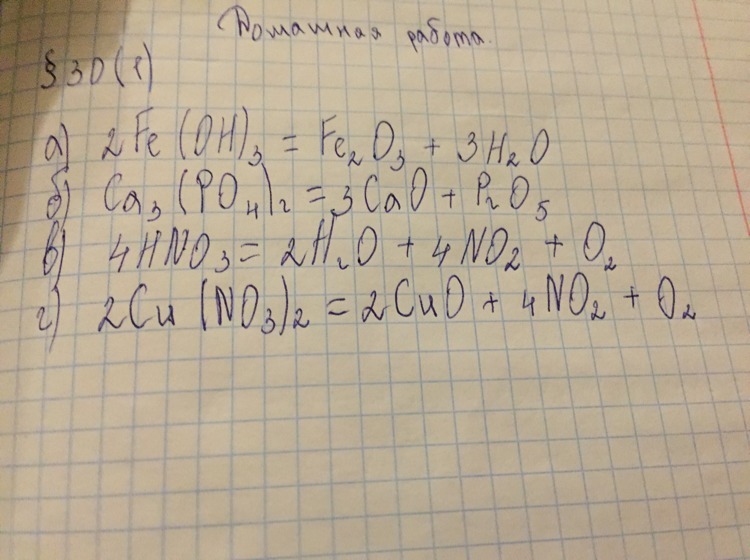 Домашная работа.
§ 30 (1)
а) 2Fe(OH)₃ = Fe₂O₃ + 3H₂O
б) Ca₃(PO₄)₂ = 3CaO + P₂O₅
в) 4HNO₃ = 2H₂O + 4NO₂ + O₂
г) 2Cu(NO₃)₂ = 2CuO + 4NO₂ + O₂